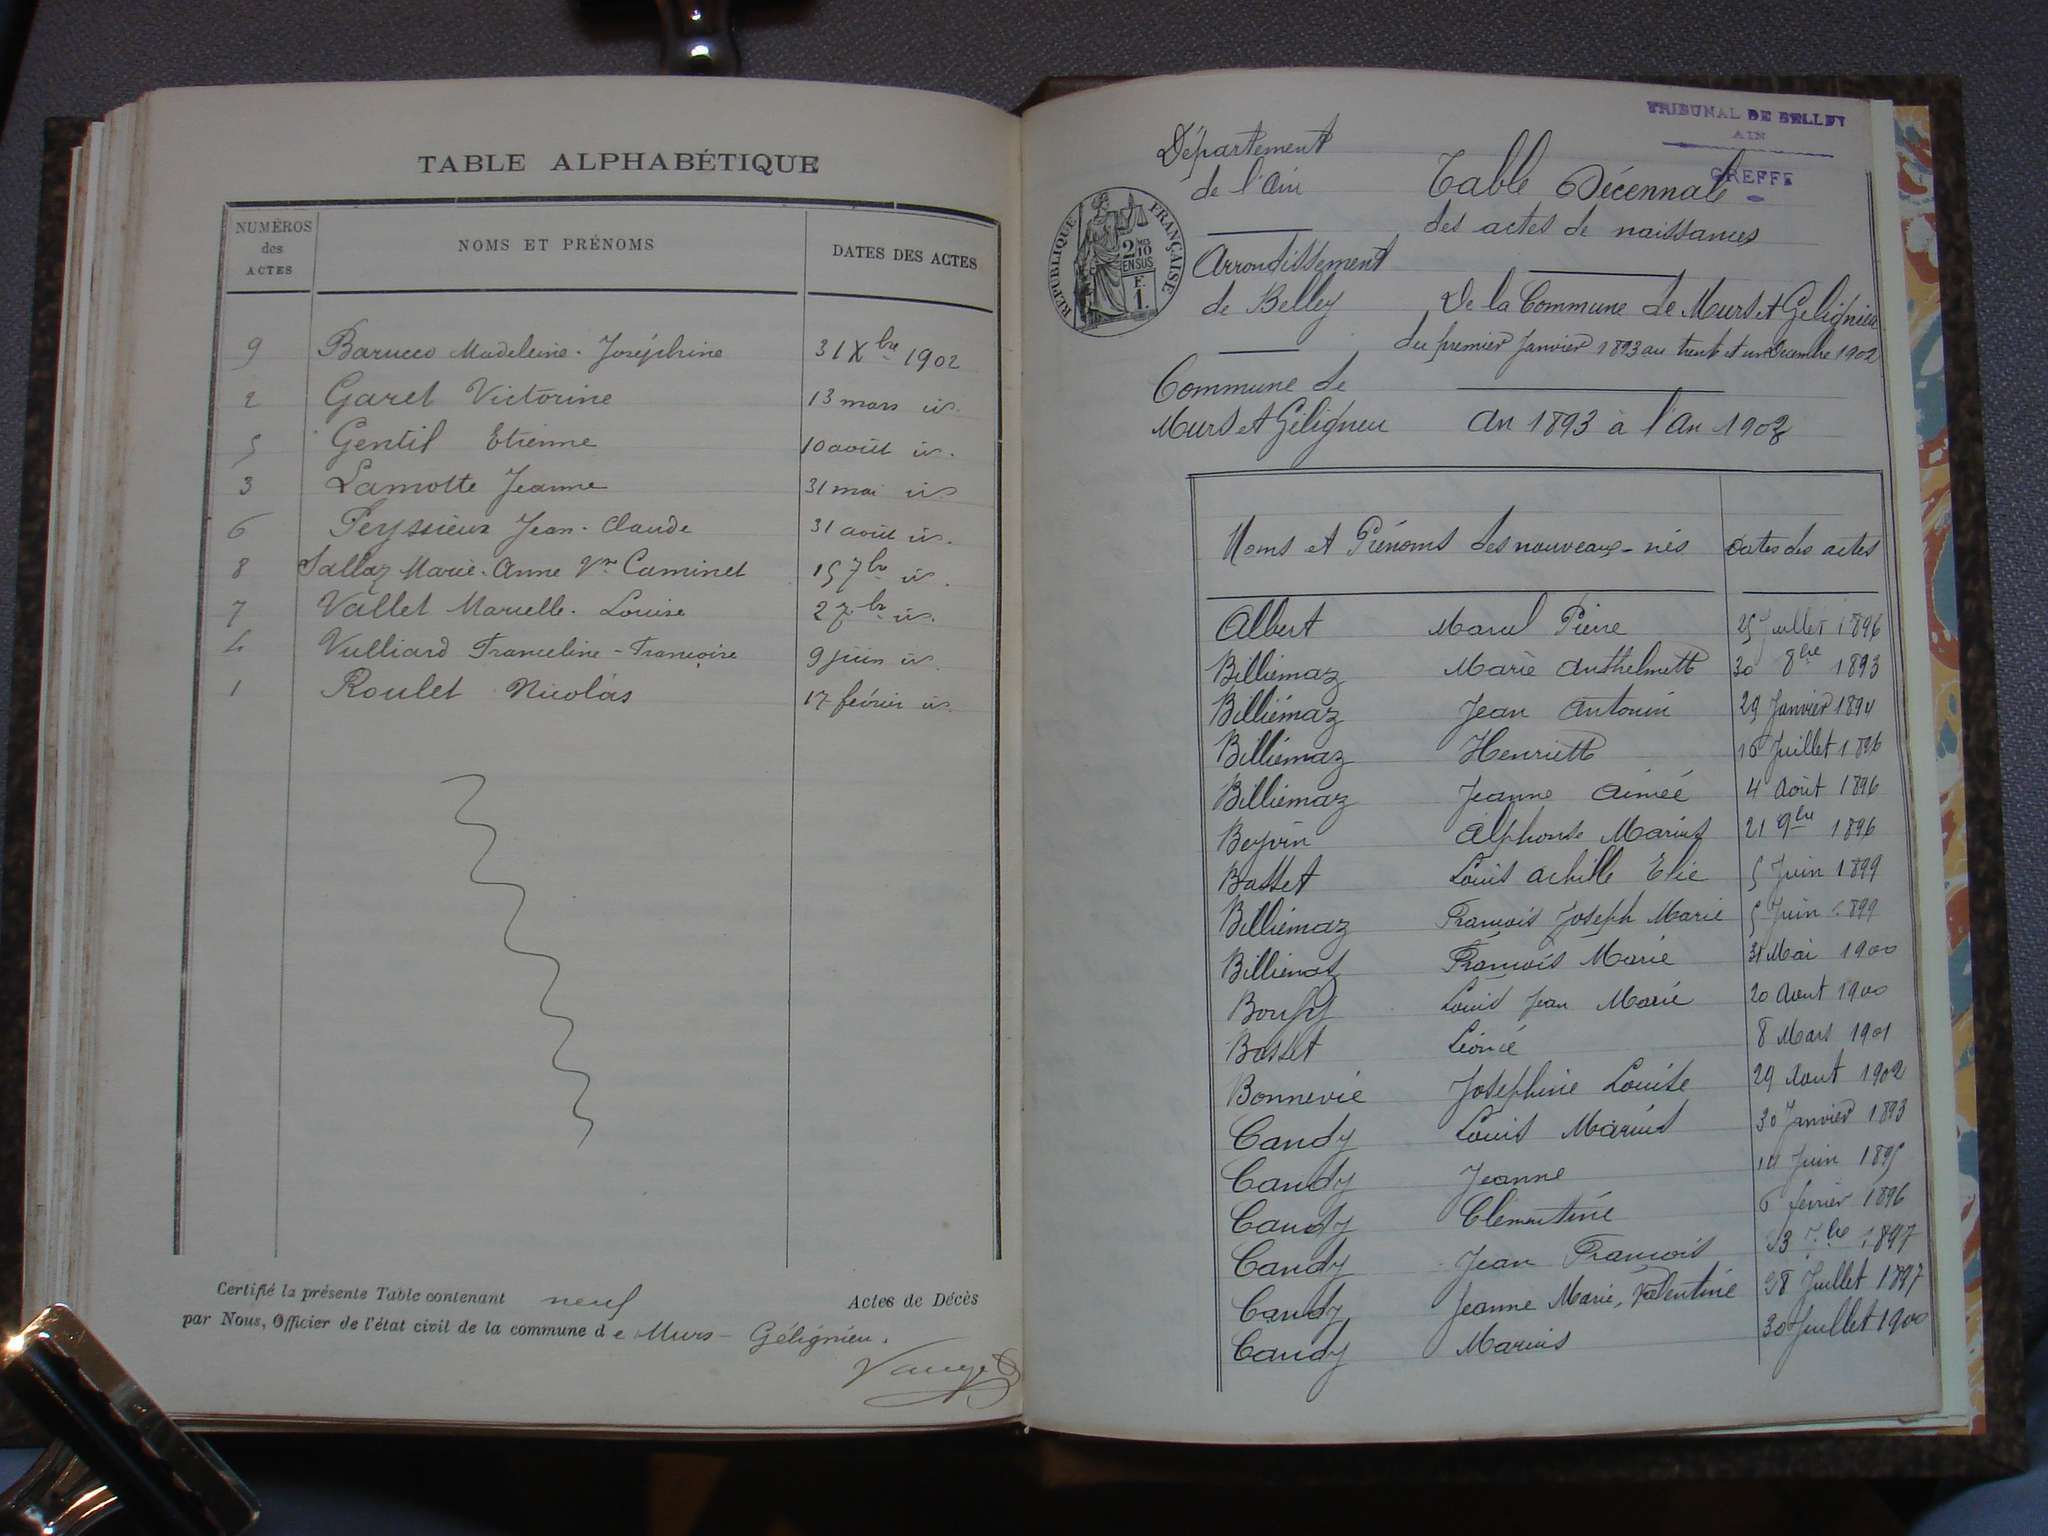 TABLE ALPHABÉTIQUE
NUMÉROS des ACTES NOMS ET PRÉNOMS DATES DES ACTES
9 Barucco Madeleine-Joséphine 31 Xbre 1902
2 Garet Victorine 13 mars id.
5 Gentil Etienne 10 août id.
3 Lamotte Jeanne 31 mai id.
6 Peyssieux Jean-Claude 31 août id.
8 Sallaz Marie-Anne Vve Caminet 15 7bre id.
7 Vallet Marcelle-Louise 2 7bre id.
4 Vulliard Franceline-Françoise 9 juin id.
1 Roulet Nicolas 17 février id.
Certifié la présente Table contenant neuf Actes de Décès
par Nous, Officier de l'état civil de la commune de Murs-Gélignieu.
TRIBUNAL DE BELLEY
AIN
GREFFE
Département
de l'Ain
Arrondissement
de Belley
Commune de
Murs et Gélignieu
RÉPUBLIQUE FRANÇAISE
2/10 EN SUS
F. 1.
Table Décennale
des actes de naissances
De la Commune de Murs et Gélignieu
du premier Janvier 1893 au trente et un Décembre 1902
An 1893 à l'An 1902
Noms et Prénoms des nouveaux-nés Dates des actes
Albert Marcel Pierre 25 Juillet 1896
Billiémaz Marie Anthelmette 30 8bre 1893
Billiémaz Jean Antonin 29 Janvier 1894
Billiémaz Henriette 16 Juillet 1896
Billiémaz Jeanne Aimée 4 Août 1896
Beyrin Alphonse Marius 21 9bre 1896
Basset Louis Achille Elie 5 Juin 1899
Billiémaz François Joseph Marie 5 Juin 1899
Billiémaz François Marie 31 Mai 1900
Louis Jean Marie 20 Aout 1900
Basset Léonie 8 Mars 1901
Bonnevie Joséphine Louise 29 Aout 1902
Candy Louis Marius 30 Janvier 1893
Candy Jeanne 14 Juin 1895
Candy Clémentine 6 février 1896
Candy Jean François 23 7bre 1897
Candy Jeanne Marie, Valentine 28 Juillet 1897
Candy Marius 30 Juillet 1900